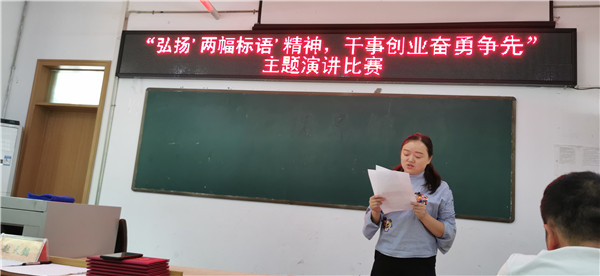 “弘扬‘两幅标语’精神，干事创业奋勇争先”
主题演讲比赛